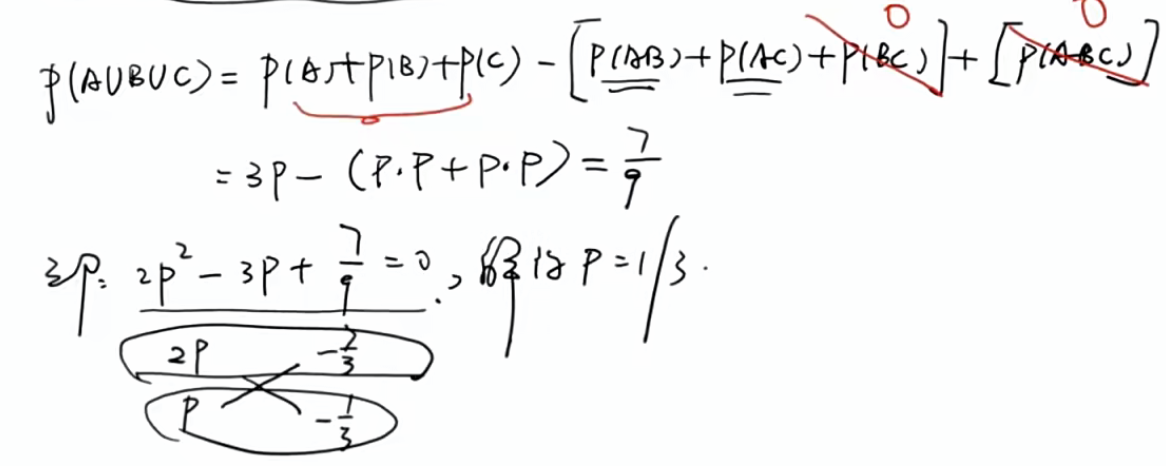 0 0
P(A∪B∪C) = P(A)+P(B)+P(C) - [P(AB)+P(AC)+P(BC)]+[P(ABC)]
= 3P - (P·P+P·P) = 7/9
即: 2P² - 3P + 7/9 = 0, 解得 P = 1/3.
2P -2/3
P -1/3